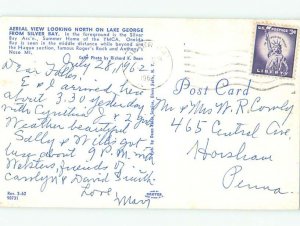 AERIAL VIEW LOOKING NORTH ON LAKE GEORGE
FROM SILVER BAY. In the foreground is the Silver
Bay Ass'n., Summer Home of the YMCA. Oneida
Bay is seen in the middle distance while beyond are
the Hague section, famous Rogers Rock and Anthony's
Nose Mt.
Color Photo by Richard K. Dean
July 28, 1962
Dear Folks:
E & I arrived here
about 3.30 yesterday
with Cynthia &
Weather beautiful
Sally & Willis got
here about 9 P.M. with
Websters, friends of
Carolyn & David Smith
Love,
Mary
Rev. 5-62
90731
Post Card
Mr & Mrs W. R.
465 Central Ave
Horsham
Penna.
U.S. POSTAGE
3¢
LIBERTY